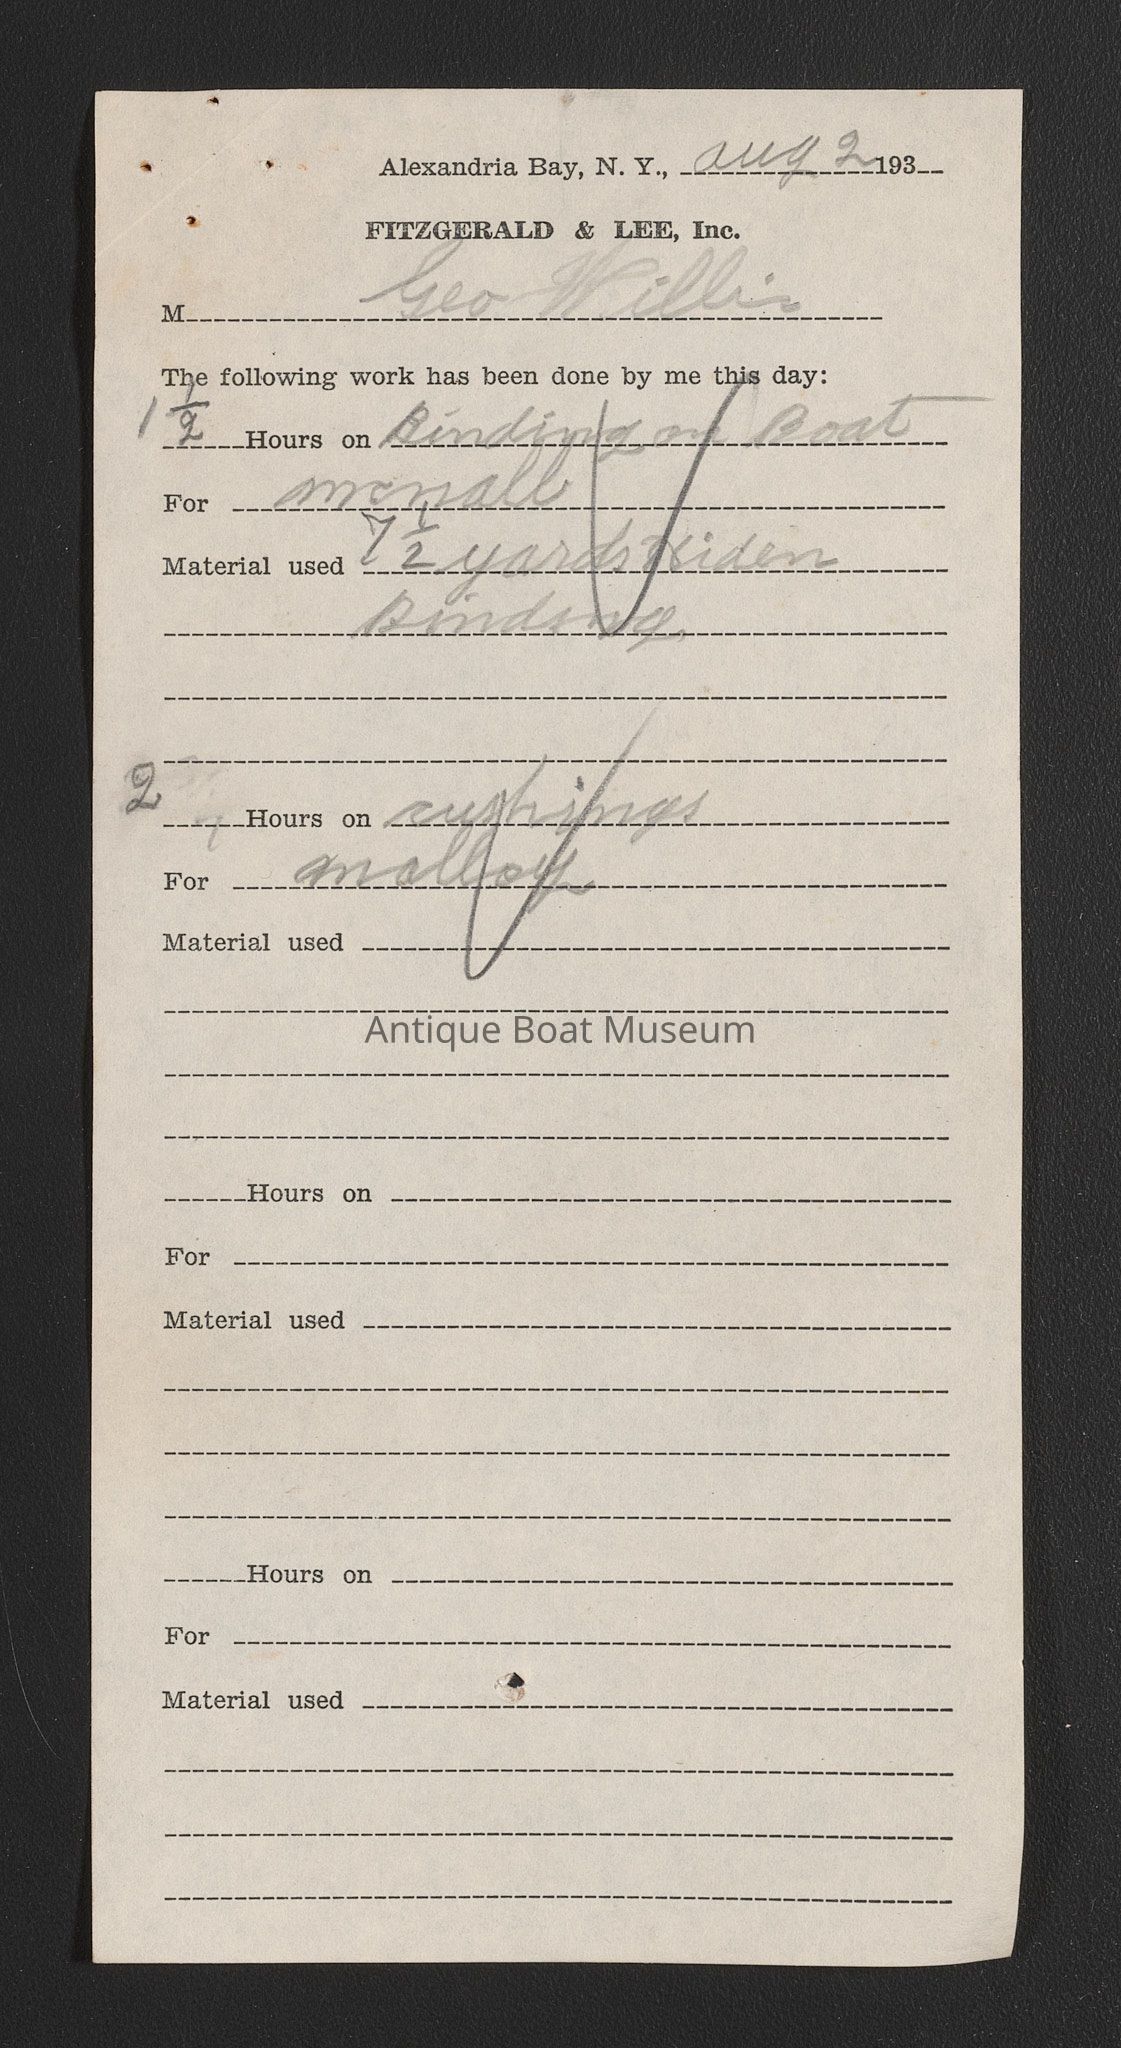 Alexandria Bay, N. Y., Aug 2 193
FITZGERALD & LEE, Inc.
M Geo Willis
The following work has been done by me this day:
1 1/2 Hours on Binding on Boat
For McNall
Material used 7 1/2 yards
Binding
2 Hours on cushings
For Malloy
Material used
Antique Boat Museum
Hours on
For
Material used
Hours on
For
Material used